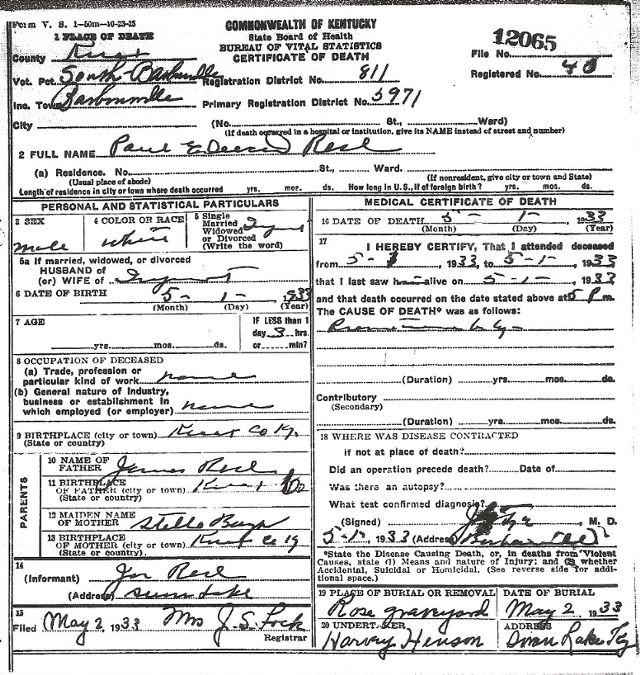 Form V. S. 1-50m-10-23-25
COMMONWEALTH OF KENTUCKY
State Board of Health
BUREAU OF VITAL STATISTICS
CERTIFICATE OF DEATH
1 PLACE OF DEATH
County Knox
Vot. Pct. South Barbourville Registration District No. 811
File No. 12065
Registered No.
Inc. Town Barbourville Primary Registration District No. 5971
City (No. St., Ward)
(If death occurred in a hospital or institution, give its NAME instead of street and number)
2 FULL NAME Paul
(a) Residence. No. St., Ward.
(Usual place of abode) (If nonresident, give city or town and State)
Length of residence in city or town where death occurred yrs. mos. ds. How long in U.S., if of foreign birth? yrs. mos. ds.
PERSONAL AND STATISTICAL PARTICULARS
3 SEX Male
4 COLOR OR RACE White
5 Single Married Widowed or Divorced (Write the word) Infant
5a If married, widowed, or divorced
HUSBAND of
(or) WIFE of Infant
6 DATE OF BIRTH 5- 1- 1933
(Month) (Day) (Year)
7 AGE yrs. mos. ds.
IF LESS than 1
day 3 hrs.
or min?
8 OCCUPATION OF DECEASED
(a) Trade, profession or
particular kind of work none
(b) General nature of Industry,
business or establishment in
which employed (or employer) none
9 BIRTHPLACE (city or town) Knox Co Ky.
(State or country)
PARENTS
10 NAME OF
FATHER James
11 BIRTHPLACE
OF FATHER (city or town) Knox
(State or country)
12 MAIDEN NAME
OF MOTHER Stella
13 BIRTHPLACE
OF MOTHER (city or town) Knox Co Ky
(State or country)
14
(Informant)
(Address)
15
Filed May 2, 1933 Mrs J. S. Lock
Registrar
MEDICAL CERTIFICATE OF DEATH
16 DATE OF DEATH 5- 1- 1933
(Month) (Day) (Year)
17 I HEREBY CERTIFY, That I attended deceased
from 5- 1, 1933, to 5-1-, 1933
that I last saw him alive on 5-1-, 1933
and that death occurred on the date stated above at 5 Pm.
The CAUSE OF DEATH* was as follows:
(Duration) yrs. mos. ds.
Contributory
(Secondary)
(Duration) yrs. mos. ds.
18 WHERE WAS DISEASE CONTRACTED
if not at place of death?
Did an operation precede death? Date of
Was there an autopsy?
What test confirmed diagnosis?
(Signed) M. D.
5-1-, 1933 (Address)
*State the Disease Causing Death, or, in deaths from Violent
Causes, state (1) Means and nature of Injury; and (2) whether
Accidental, Suicidal or Homicidal. (See reverse side for addi-
tional space.)
19 PLACE OF BURIAL OR REMOVAL
Rose graveyard
DATE OF BURIAL
May 2, 1933
20 UNDERTAKER
Harvey Henson
ADDRESS
Swan Lake Ky